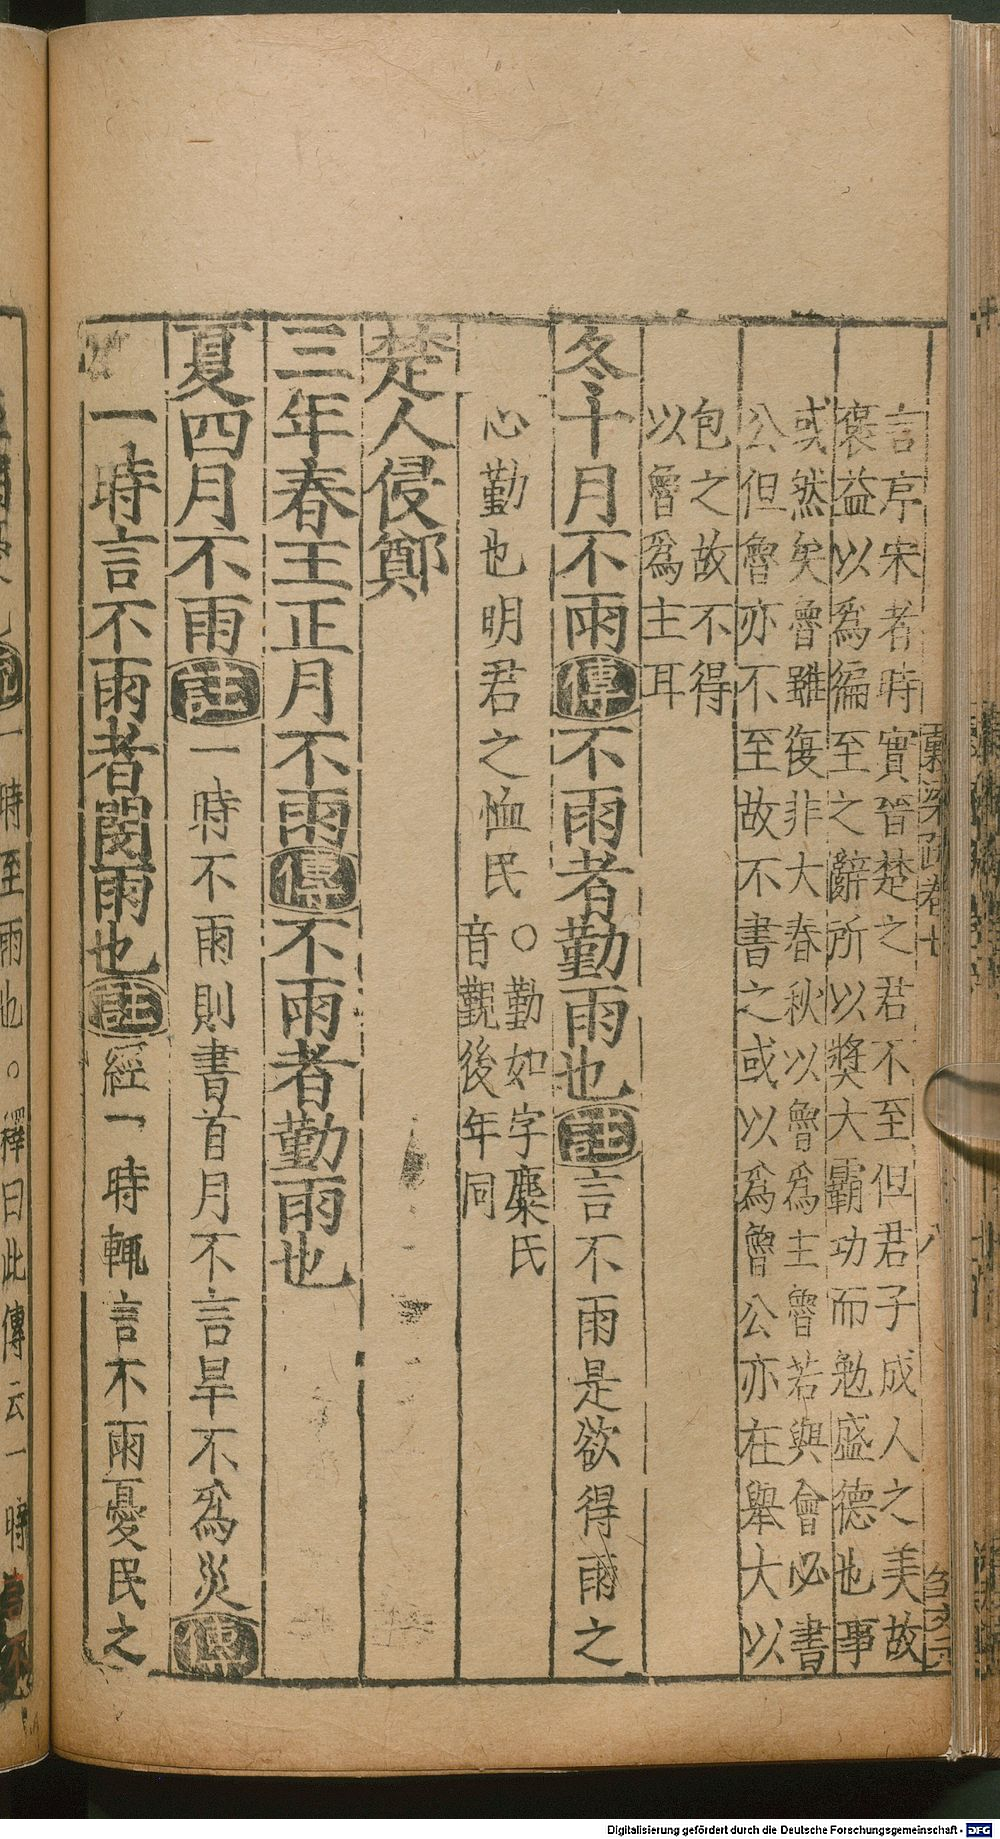 言京宋者時實晉楚之君不至但君子成人之美故
褒益以爲徧至之辭所以奬大霸功而勉盛德也事
或然矣魯雖復非大春秋以魯爲主魯若與會必書
公但魯亦不至故不書之或以爲魯公亦在舉大以
包之故不得
以魯爲主耳
冬十月不雨傳不雨者勤雨也註言不雨是欲得雨之
心勤也明君之恤民○勤如字麋氏
音覲後年同
楚人侵鄭
三年春王正月不雨傳不雨者勤雨也
夏四月不雨註一時不雨則書首月不言旱不爲災傳
一時言不雨者閔雨也註經一時輒言不雨憂民之
一時至雨也○釋曰此傳云一時言不
Digitalisierung gefördert durch die Deutsche Forschungsgemeinschaft - DFG